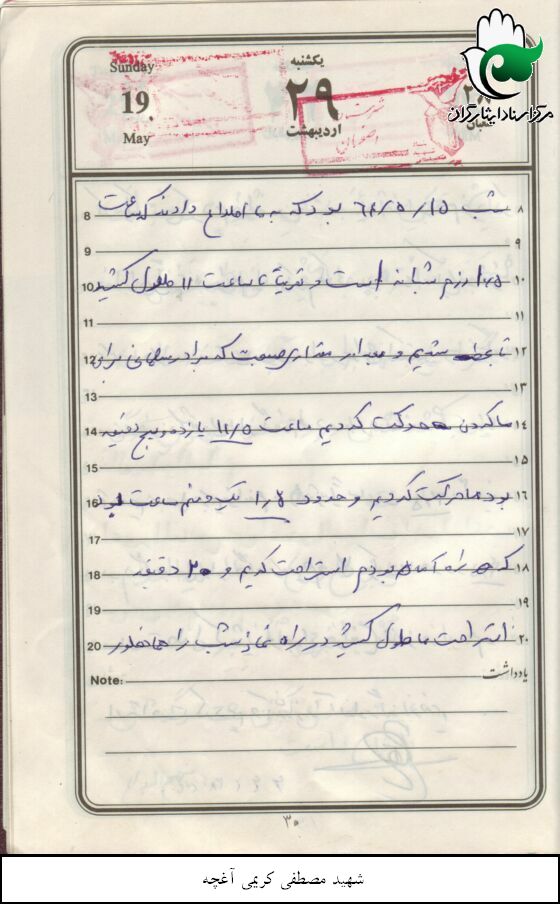 مرکز اسناد ایثارگران
Sunday
19
May
یکشنبه
۲۹
اردیبهشت
۲۸
شعبان
8 شب ۱۵/ ۵/ ۶۴ بود که به ما اطلاع دادند که ساعت ۸
9 ۹
10 ۱۰/۵ رزم شبانه است و تقریباً تا ساعت ۱۱ طول کشید ۱۰
11 ۱۱
12 تا شدیم و بعد از مقداری صحبت که برادر سلمانی برای ۱۲
13 ۱۳
14 ما کردن حرکت کردیم ساعت ۱۱/۵ یازده و پنج دقیقه ۱۴
15 ۱۵
16 بود ما حرکت کردیم و حدود ۱/۵ یک و نیم ساعت بود ۱۶
17 ۱۷
18 که راه آمده بودیم استراحت کردیم و ۲۰ دقیقه ۱۸
19 ۱۹
20 استراحت ما طول کشید در راه نماز شب را هم ۲۰
Note: یادداشت
۳۰
شهید مصطفی کریمی آغچه